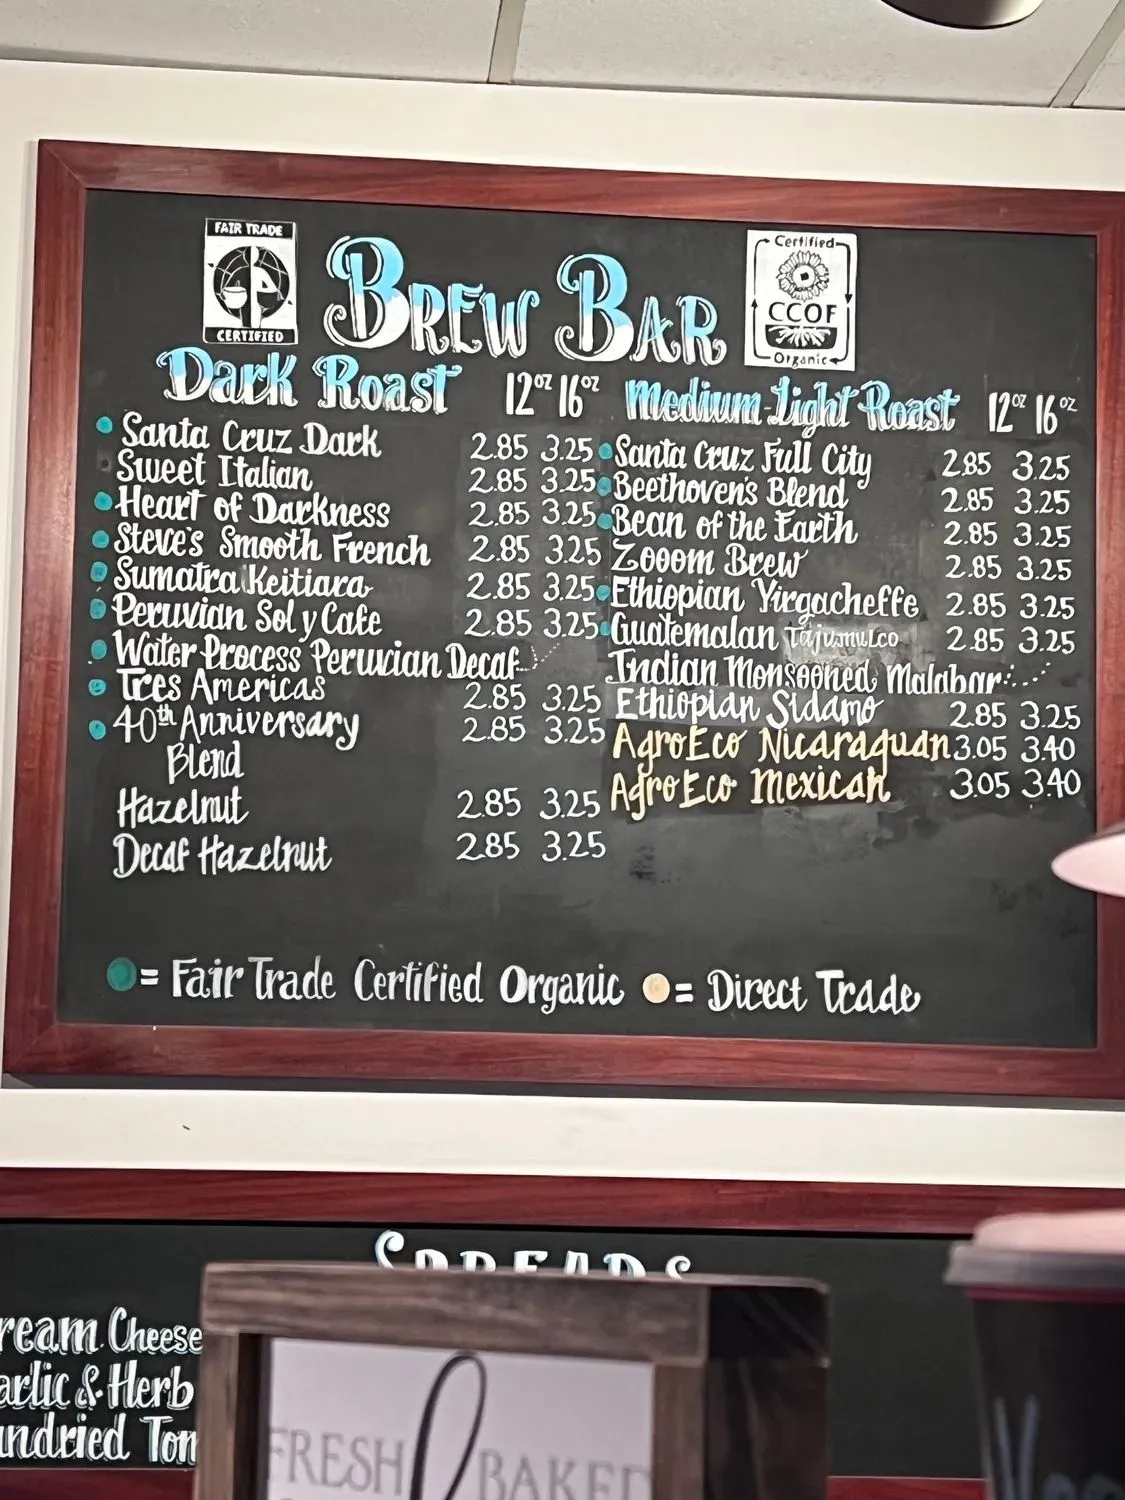 FAIR TRADE
CERTIFIED
BREW BAR
Certified
CCOF
Organic
Dark Roast 12oz 16oz
Santa Cruz Dark 2.85 3.25
Sweet Italian 2.85 3.25
Heart of Darkness 2.85 3.25
Steve's Smooth French 2.85 3.25
Sumatra Keitiara 2.85 3.25
Peruvian Sol y Cafe 2.85 3.25
Water Process Peruvian Decaf
Tres Americas 2.85 3.25
40th Anniversary 2.85 3.25
Blend
Hazelnut 2.85 3.25
Decaf Hazelnut 2.85 3.25
Medium-Light Roast 12oz 16oz
Santa Cruz Full City 2.85 3.25
Beethoven's Blend 2.85 3.25
Bean of the Earth 2.85 3.25
Zooom Brew 2.85 3.25
Ethiopian Yirgacheffe 2.85 3.25
Guatemalan Tajumulco 2.85 3.25
Indian Monsooned Malabar
Ethiopian Sidamo 2.85 3.25
AgroEco Nicaraguan 3.05 3.40
AgroEco Mexican 3.05 3.40
= Fair Trade Certified Organic = Direct Trade
SPREADS
ream Cheese
arlic & Herb
undried Tom
FRESH BAKED